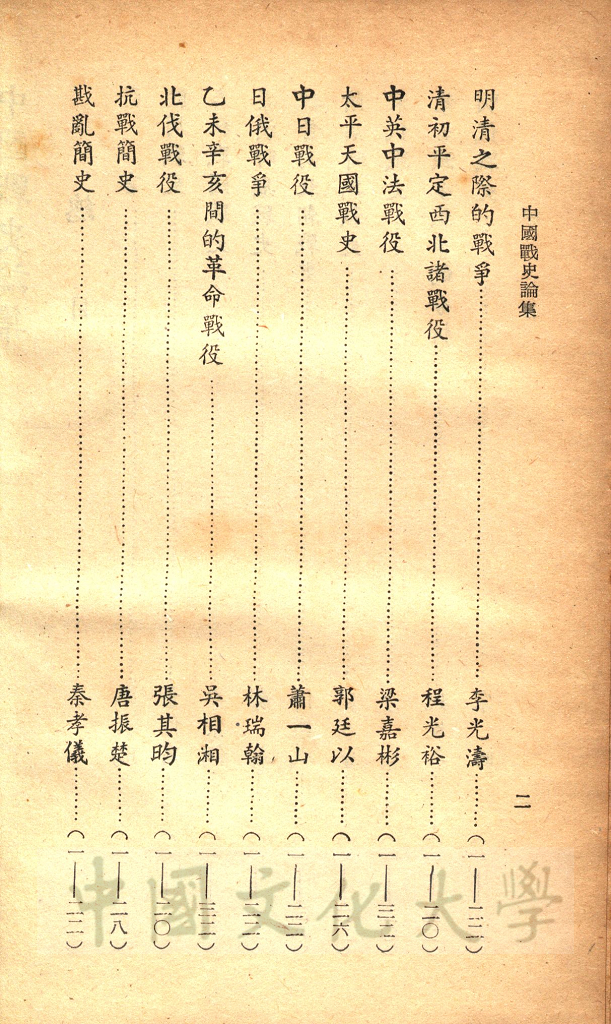 中國戰史論集
二
明清之際的戰爭……李光濤……（一——二二）
清初平定西北諸戰役……程光裕……（一——二〇）
中英中法戰役……梁嘉彬……（一——三二）
太平天國戰史……郭廷以……（一——二六）
中日戰役……蕭一山……（一——二二）
日俄戰爭……林瑞翰……（一——二二）
乙未辛亥間的革命戰役……吳相湘……（一——
北伐戰役……張其昀……（一——二〇）
抗戰簡史……唐振楚……（一——二八）
戡亂簡史……秦孝儀……（一——二二）
中國文化大學